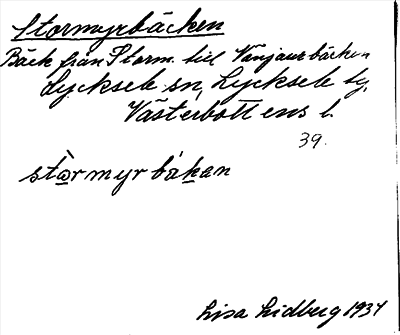 Stormyrbäcken
Bäck från Storm. till Vänjaurbäcken
Lycksele sn, Lycksele tg,
Västerbottens l.
39.
stòrmyrbäkan
Lisa Lidberg 1934